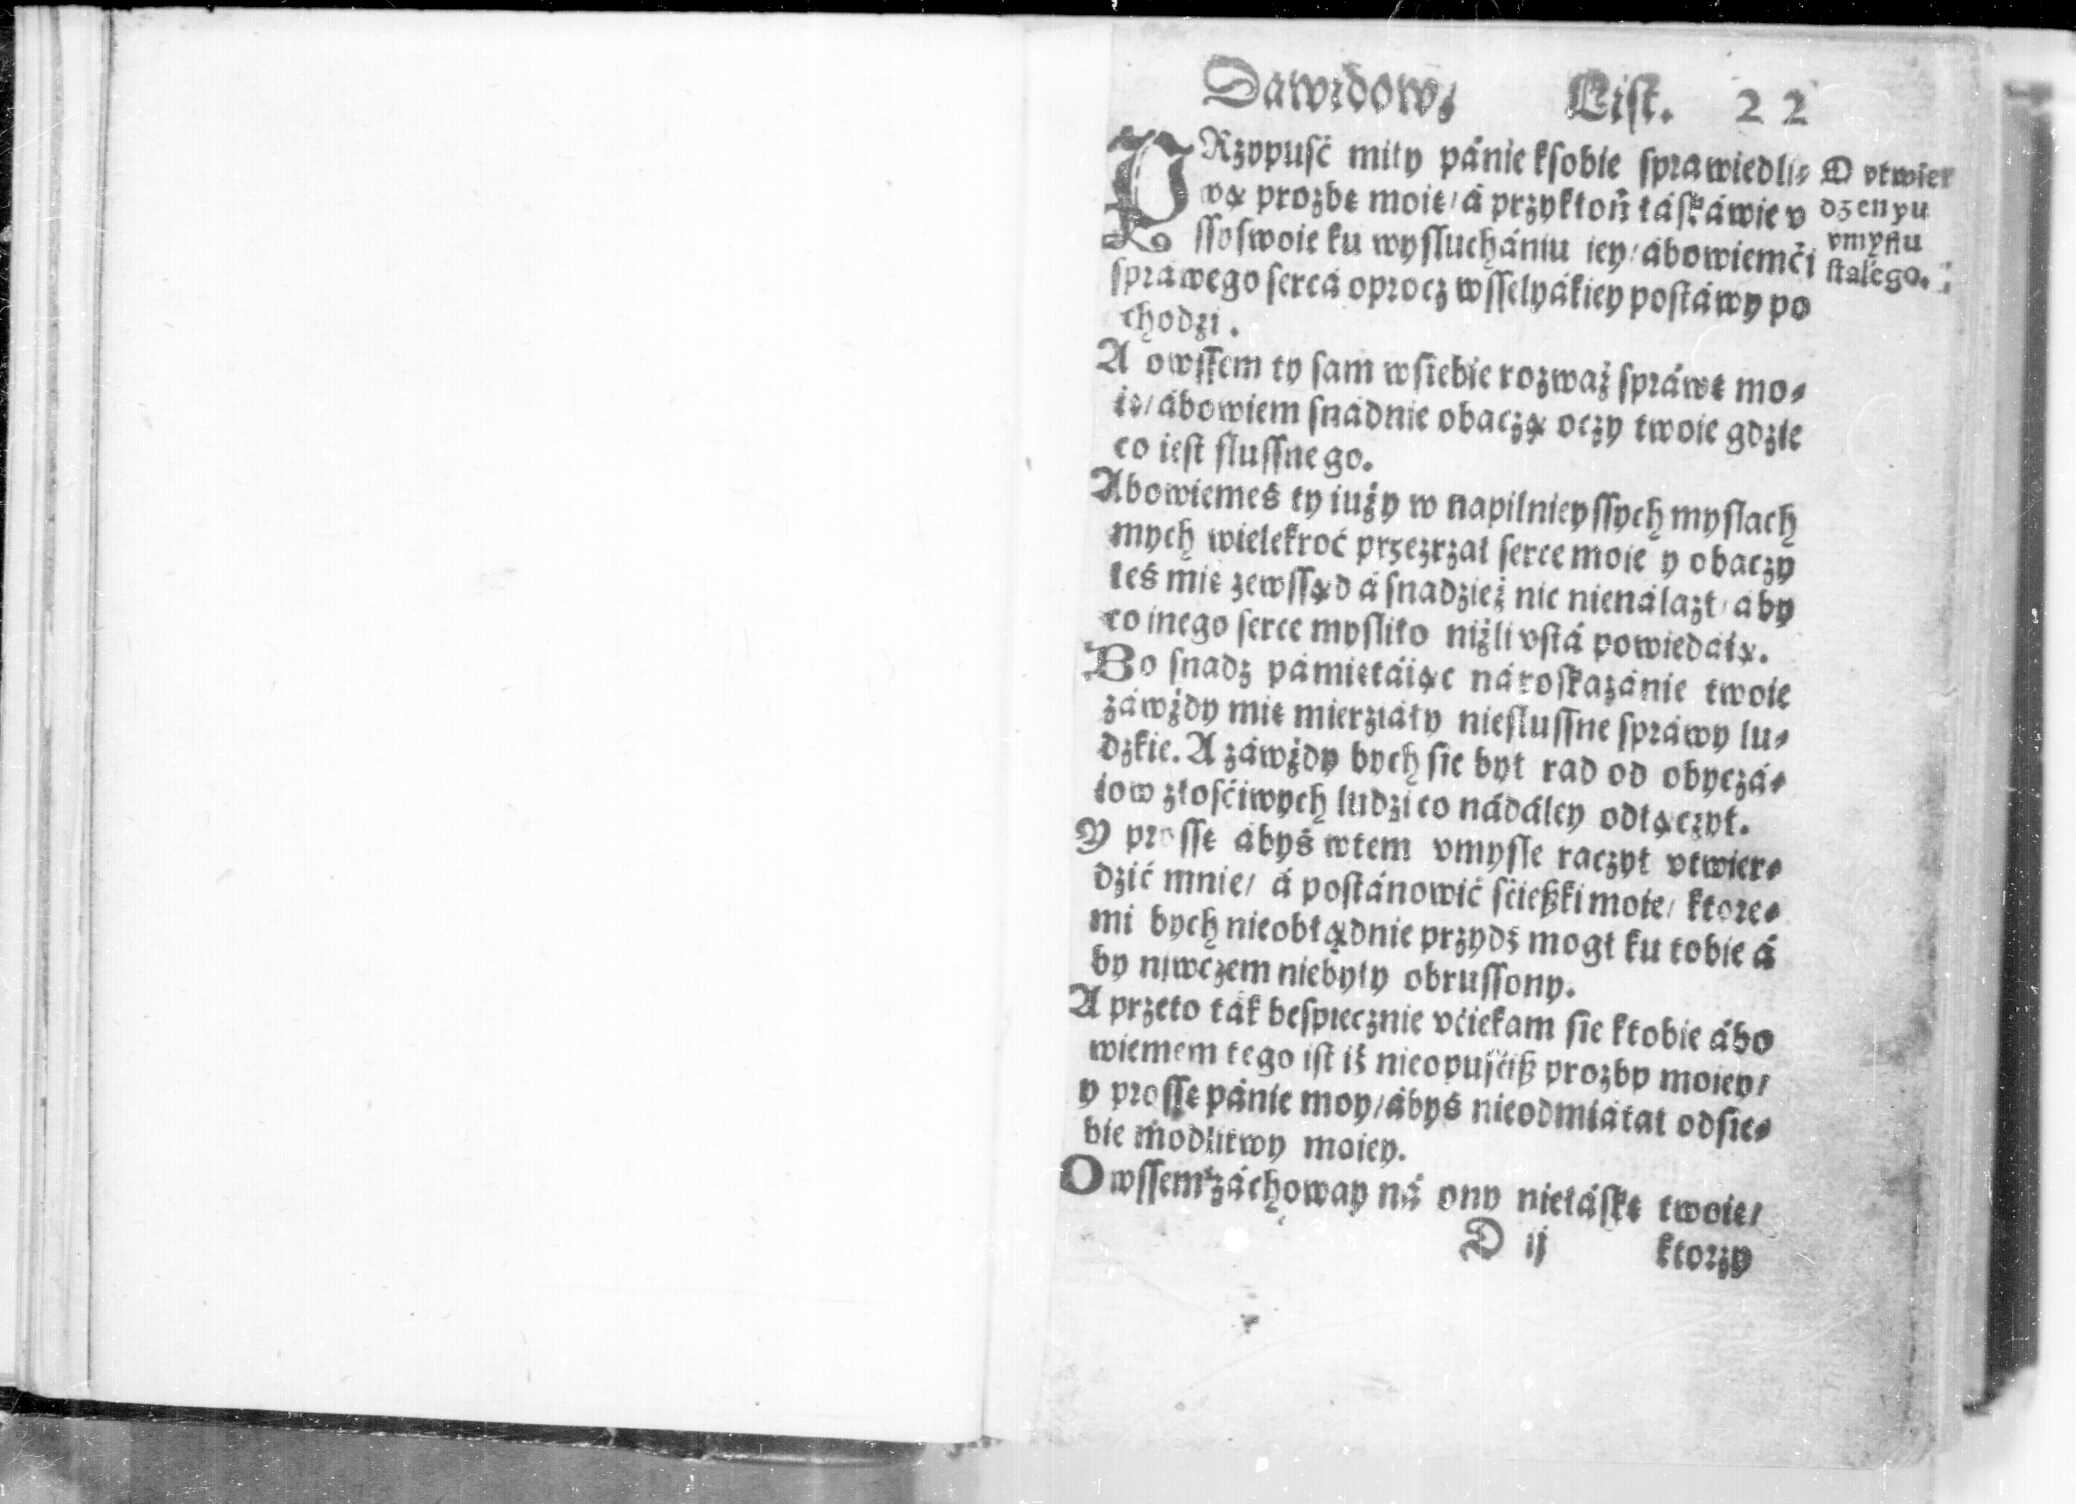 Dawidow, List. 22
PRzypuść miły pánie ksobie sprawiedli⸗
wą prozbę moię/ á przykłoń łáskáwie v
sso swoie ku wysluchániu iey/ ábowiemći
spráwego sercá oprocz wsselyákiey postáwy po
chodzi.
O vtwier
dzenyu
vmysłu
stałego.
A owssem ty sam wsiebie rozważ spráwę mo⸗
ię/ ábowiem snádnie obaczą oczy twoie gdzie
co iest slussnego.
Abowiemeś ty iuży w napilnieyssych myslach
mych wielekroć przezrzał serce moie y obaczy
łeś mię zewssąd á snadzież nic nienálazł/ aby
co inego serce mysliło niżli vstá powiedáłą.
Bo snadz pámiętáiąc ná roskazánie twoie
záwżdy mię mierziáły nieslussne spráwy lu⸗
dzkie. A záwżdy bych sie był rad od obyczá⸗
iow złośćiwych ludzi co nádáley odłączył.
Y prossę ábyś wtem vmysle raczył vtwier⸗
dzić mnie/ á postánowić śćieszki moie/ ktore⸗
mi bych nieobłądnie przydź mogł ku tobie á
by niwczem niebyły obrussony.
A przeto ták bespiecznie vćiekam sie ktobie ábo
wiemem tego ist iż nieopuśćisz prozby moiey/
y prossę pánie moy/ ábyś nieodmiátał odsie⸗
bie modlitwy moiey.
Owssem záchoway ná ony niełáskę twoię/
D ij ktorzy